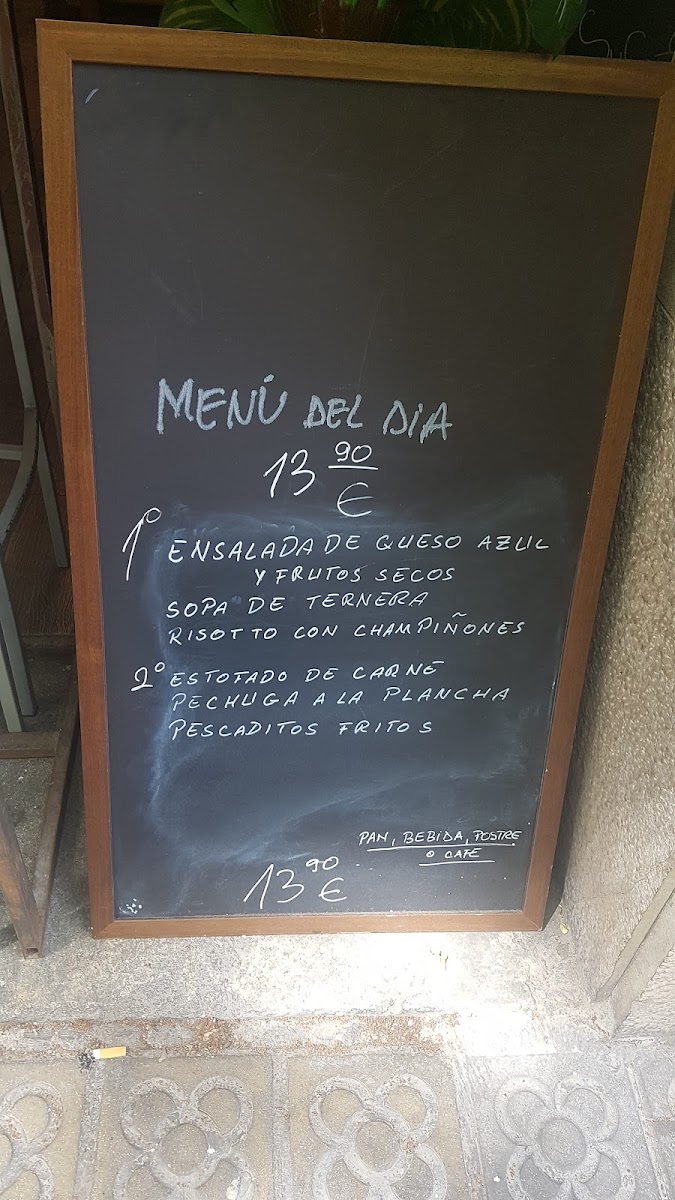 MENÚ DEL DIA
13 90
€
1º ENSALADA DE QUESO AZUL
Y FRUTOS SECOS
SOPA DE TERNERA
RISOTTO CON CHAMPIÑONES
2º ESTOFADO DE CARNE
PECHUGA A LA PLANCHA
PESCADITOS FRITOS
PAN, BEBIDA, POSTRE
O CAFÉ
13 90 €